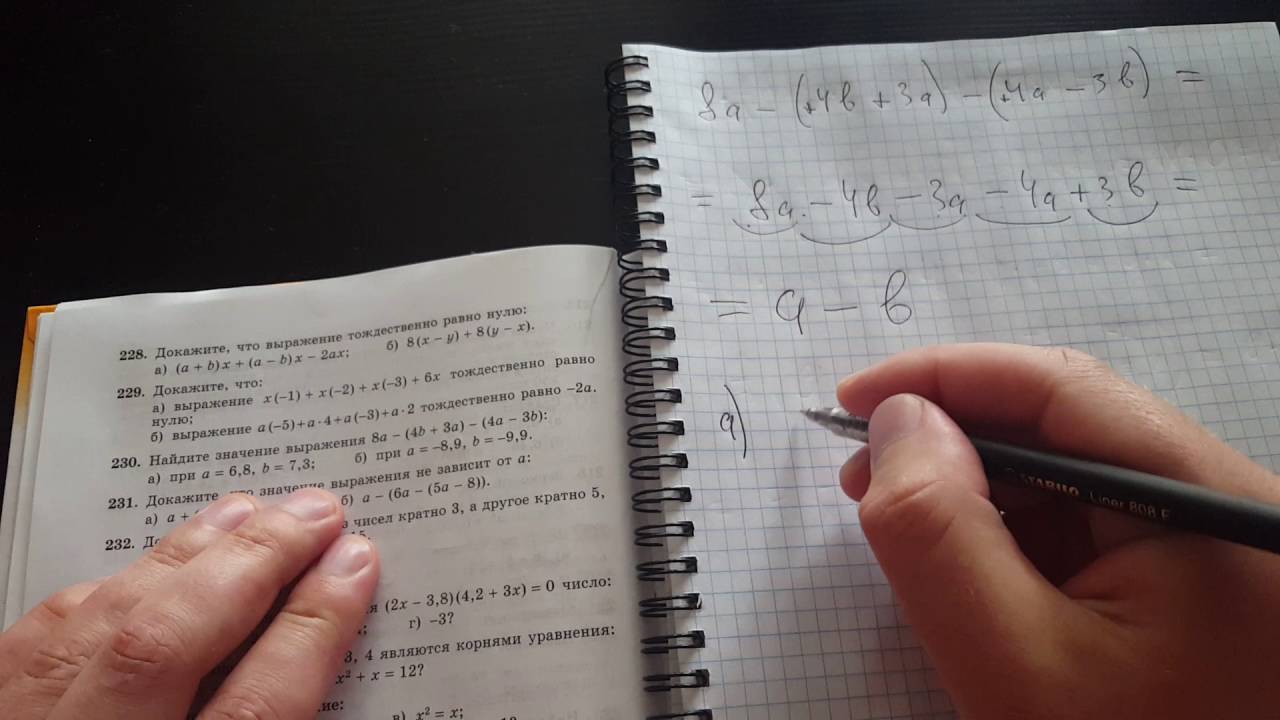 8a - (+4b + 3a) - (+4a - 3b) =
= 8a - 4b - 3a - 4a + 3b =
= a - b
а)
228. Докажите, что выражение тождественно равно нулю:
а) (a + b)x + (a − b)x − 2ax; б) 8(x − y) + 8(y − x).
229. Докажите, что:
а) выражение x(−1) + x(−2) + x(−3) + 6x тождественно равно
нулю;
б) выражение a(−5) + a · 4 + a(−3) + a · 2 тождественно равно −2a.
230. Найдите значение выражения 8a − (4b + 3a) − (4a − 3b):
а) при a = 6,8, b = 7,3; б) при a = −8,9, b = −9,9.
231. Докажите, что значение выражения не зависит от a:
а) a + б) a − (6a − (5a − 8)).
232. чисел кратно 3, а другое кратно 5,
(2x − 3,8)(4,2 + 3x) = 0 число:
г) −3?
3, 4 являются корнями уравнения:
x² + x = 12?
в) x² = x;
STABILO Liner 808 F